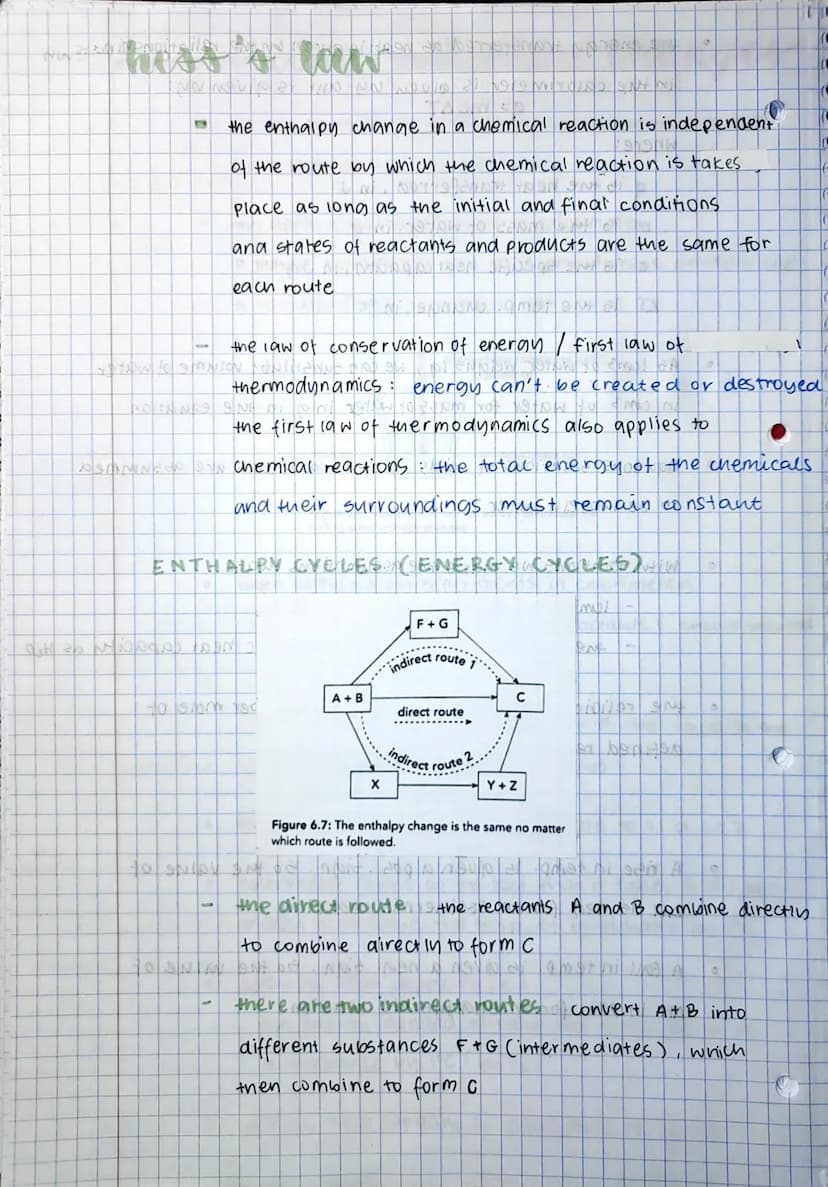 hess's law
the enthalpy change in a chemical reaction is independent
of the route by which the chemical reaction is takes
place as long as the initial and final conditions
and states of reactants and products are the same for
each route
- the law of conservation of energy / first law of
thermodynamics : energy can't be created or destroyed
the first law of thermodynamics also applies to
chemical reactions : the total energy of the chemicals
and their surroundings must remain constant
ENTHALPY CYCLES (ENERGY CYCLES)
F + G
indirect route 1
A + B
C
direct route
indirect route 2
X
Y + Z
Figure 6.7: The enthalpy change is the same no matter
which route is followed.
- the direct route the reactants A and B combine directly
to combine directly to form C
- there are two indirect routes convert A + B into
different substances F + G (intermediates), which
then combine to form C